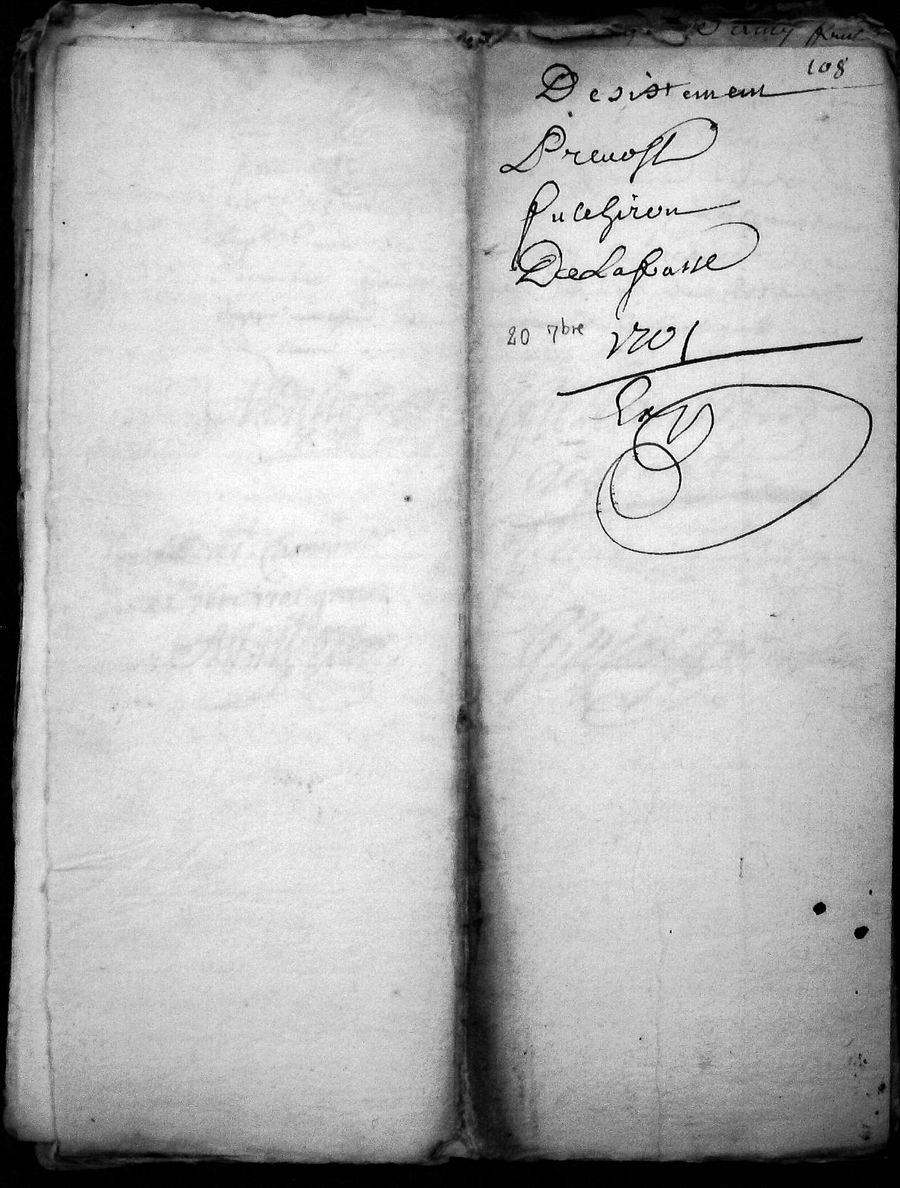 108
Desistement
Prevost
Pulchiron
De Lafosse
20 7bre 1701